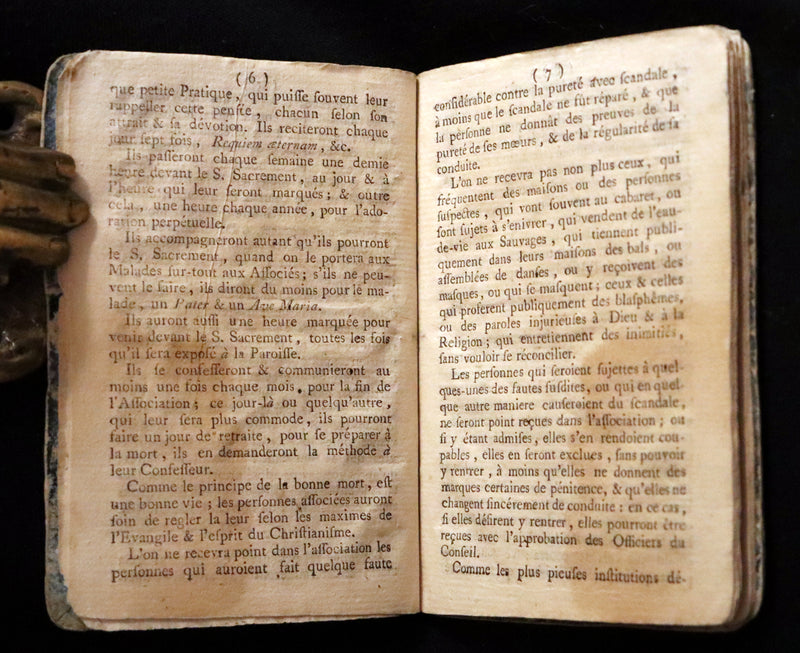 ( 6. )
que petite Pratique, qui puiſſe ſouvent leur
rappeller cette penſée, chacun ſelon ſon
attrait & ſa dévotion. Ils reciteront chaque
jour ſept fois, Requiem æternam, &c.
Ils paſſeront chaque ſemaine une demie
heure devant le S. Sacrement, au jour & à
l'heure qui leur ſeront marqués ; & outre
cela, une heure chaque année, pour l'ado-
ration perpétuelle.
Ils accompagneront autant qu'ils pourront
le S. Sacrement, quand on le portera aux
Malades ſur-tout aux Aſſociés ; s'ils ne peu-
vent le faire, ils diront du moins pour le ma-
lade, un Pater & un Ave Maria.
Ils auront auſſi une heure marquée pour
venir devant le S. Sacrement, toutes les fois
qu'il ſera expoſé à la Paroiſſe.
Ils ſe confeſſeront & communieront au
moins une fois chaque mois, pour la fin de
l'Aſſociation ; ce jour-là ou quelqu'autre,
qui leur ſera plus commode, ils pourront
faire un jour de retraite, pour ſe préparer à
la mort, ils en demanderont la méthode à
leur Confeſſeur.
Comme le principe de la bonne mort, eſt
une bonne vie ; les perſonnes aſſociées auront
ſoin de regler la leur ſelon les maximes de
l'Evangile & l'eſprit du Chriſtianiſme.
L'on ne recevra point dans l'aſſociation les
perſonnes qui auroient fait quelque faute
( 7 )
conſidérable contre la pureté avec ſcandale,
à moins que le ſcandale ne fût réparé, & que
la perſonne ne donnât des preuves de la
pureté de ſes mœurs, & de la régularité de ſa
conduite.
L'on ne recevra pas non plus ceux, qui
fréquentent des maiſons ou des perſonnes
ſuſpectes, qui vont ſouvent au cabaret, ou
ſont ſujets à s'enivrer, qui vendent de l'eau-
de-vie aux Sauvages, qui tiennent publi-
quement dans leurs maiſons des bals, ou
aſſemblées de danſes, ou y reçoivent des
maſques, ou qui ſe maſquent ; ceux & celles
qui proferent publiquement des blaſphêmes,
ou des paroles injurieuſes à Dieu & à la
Religion ; qui entretiennent des inimitiés,
ſans vouloir ſe réconcilier.
Les perſonnes qui ſeroient ſujettes à quel-
ques-unes des fautes ſuſdites, ou qui en quel-
que autre maniere cauſeroient du ſcandale,
ne ſeront point reçues dans l'aſſociation ; ou
ſi y étant admiſes, elles s'en rendoient cou-
pables, elles en ſeront excluſes, ſans pouvoir
y rentrer, à moins qu'elles ne donnent des
marques certaines de pénitence, & qu'elles ne
changent ſincérement de conduite : en ce cas,
ſi elles déſirent y rentrer, elles pourront être
reçues avec l'approbation des Officiers du
Conſeil.
Comme les plus pieuſes inſtitutions dé-